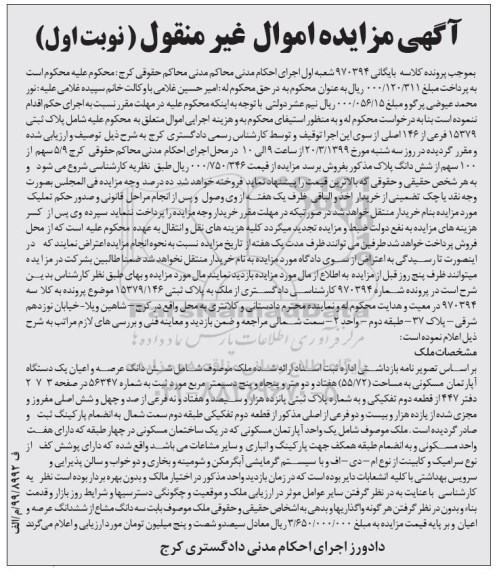 آگهی مزایده اموال غیر منقول (نوبت اول)
بموجب پرونده کلاسه بایگانی ۹۷۰۳۹۴ شعبه اول اجرای احکام مدنی محاکم مدنی محاکم حقوقی کرج: محکوم علیه محکوم است
به پرداخت مبلغ ۰۰۰/۱۲۰/۳۱۱ ریال به عنوان محکوم به در حق محکوم له: امیر حسین غلامی با وکالت خانم سپیده غلامی علیه: نور
محمد عیوضی پرگو و مبلغ ۰۰۰/۰۵۶/۱۵ ریال نیم عشر دولتی با توجه به اینکه محکوم علیه در مهلت مقرر نسبت به اجرای حکم اقدام
ننموده است بنا به درخواست محکوم له و به منظور استیفای محکوم به و هزینه اجرایی اموال متعلق به محکوم علیه شامل پلاک ثبتی
۱۵۳۷۹ فرعی از ۱۴۶ اصلی از سوی این اجرا توقیف و توسط کارشناس رسمی دادگستری کرج به شرح ذیل توصیف و ارزیابی شده
و مقرر گردیده در روز سه شنبه مورخ ۲۰/۳/۱۳۹۹ از ساعت ۹ الی ۱۰ در محل اجرای احکام مدنی محاکم حقوقی کرج ۵/۹ سهم از
۱۰۰ سهم از شش دانگ پلاک مذکور بفروش برسد مزایده از قیمت ۰۰۰/۷۵۰/۳۴۶ ریال طبق نظریه کارشناسی شروع می شود و
به هر شخص حقیقی و حقوقی که بالاترین قیمت را پیشنهاد نماید فروخته خواهد شد ده درصد وجه مزایده فی المجلس بصورت
وجه نقد یا چک تضمینی از خریدار اخذ و الباقی ظرف یک هفته از وی وصول و پس از انجام مراحل قانونی و صدور حکم تملیک
مورد مزایده بنام خریدار منتقل خواهد شد در صورتیکه در مهلت مقرر خریدار وجه مزایده را پرداخت ننماید سپرده وی پس از کسر
هزینه های مزایده به نفع دولت ضبط و مزایده تجدید میگردد کلیه هزینه های نقل و انتقال به عهده محکوم علیه است که از محل
فروش پرداخت خواهد شد طرفین می توانند ظرف مدت یک هفته از تاریخ مزایده نسبت به نحوه انجام مزایده اعتراض نمایند که در
اینصورت تا رسیدگی به اعتراض از سوی دادگاه مورد مزایده به نام خریدار منتقل نخواهد شد ضمنا طالبین بشرکت در مزایده
میتوانند ظرف پنج روز قبل از مزایده به اطلاع از مال مورد مزایده بازدید نمایند مال مورد مزایده و بهای طبق نظر کارشناس بدین
شرح است در پرونده شماره ۹۷۰۳۹۴ کارشناسی دادگستری از ملک به پلاک ثبتی ۱۵۳۷۹/۱۴۶ موضوع پرونده به کلاسه
۹۷۰۳۹۴ در معیت و هدایت محکوم له و نماینده محترم دادستانی و کلانتری به محل واقع در کرج – شاهین ویلا- خیابان نوزدهم
شرقی – پلاک ۳۷ – طبقه دوم – واحد ۲ – سمت شمالی مراجعه و ضمن بازدید و معاینه فنی و بررسی های لازم مراتب به شرح
ذیل اعلام نموده است:
مشخصات ملک
بر اساس تصویر نامه بازداشتی اداره ثبت اسناد ارائه شده ملک موصوف شامل شش دانگ عرصه و اعیان یک دستگاه
آپارتمان مسکونی به مساحت (۵۵/۷۲) هفتاد و دو متر و پنجاه و پنج دسیمتر مربع مورد ثبت به شماره ۵۶۳۴۷ در صفحه ۳ ۷ ۲
دفتر ۴۴۷ از قطعه دوم تفکیکی و به شماره پلاک ثبتی پانزده هزار و سیصد و هفتاد و نه فرعی از صد و چهل و شش اصلی مفروز و
مجزی شده از یازده هزار و بیست و دو فرعی از اصلی مذکور از قطعه دوم تفکیکی طبقه دوم سمت شمال به انضمام پارکینگ ثبت و
صادر گردیده است. ملک موصوف شامل یک واحد آپارتمان مسکونی که در یک ساختمان مسکونی در چهار طبقه که دارای هفت
واحد مسکونی و به انضمام طبقه همکف جهت پارکینگ و انباری و سایر مشاعات می باشد واقع شده که دارای پوشش کف از
نوع سرامیک و کابینت از نوع ام – دی – اف و با سیستم گرمایشی آبگرمکن و شومینه و بخاری و دو خواب و سالن پذیرایی و
سرویس بهداشتی با کلیه انشعابات دایر بوده است که در زمان بازدید واحد مذکور در اختیار مالک و بدون بهره بردار بوده است نظریه
کارشناسی با عنایت به در نظر گرفتن سایر عوامل موثر در ارزیابی ملک و موقعیت و چگونگی دسترسیها و شرایط روز بازار و قدمت
بناء و بدون در نظر گرفتن هر گونه واگذاریها و بدهی به اشخاص حقیقی و حقوقی ملک موصوف بابت سه دانگ مشاع از ششدانگ عرصه و
اعیان و بر پایه قیمت مزایده به مبلغ ۳/۶۵۰/۰۰۰/۰۰۰ ریال معادل سیصد و شصت و پنج میلیون تومان مورد ارزیابی و اعلام می گردد
دادورز اجرای احکام مدنی دادگستری کرج
۹۹/۸۹۹۲/م/الف ف